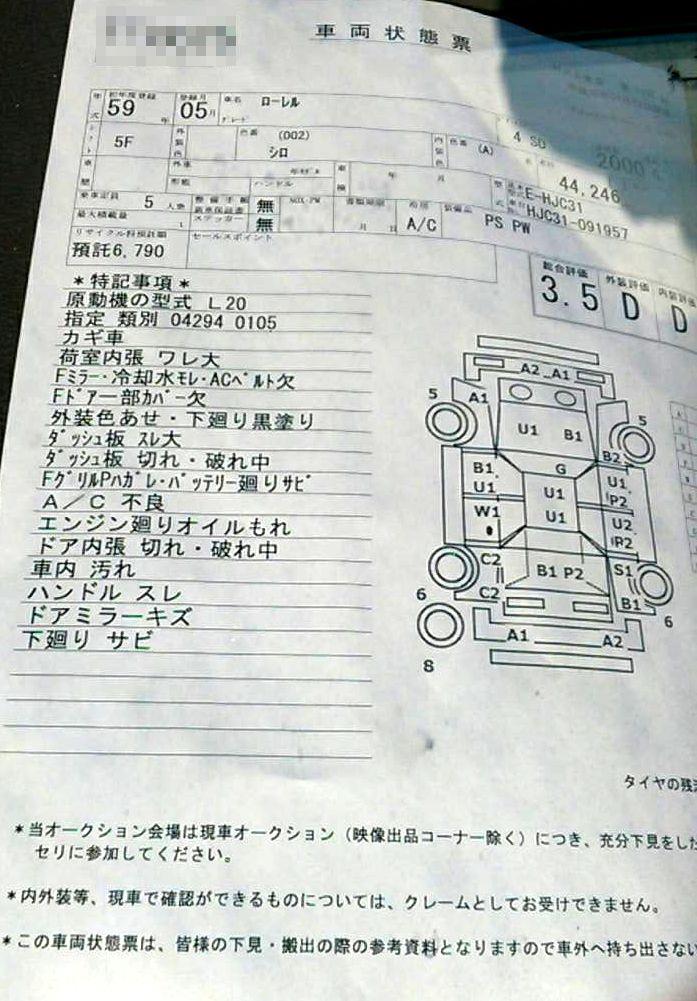 車両状態票
初年度登録 登録月 車名 ローレル
年式 59年 05月 グレード
シフト 5F 外装色 色番 (002) シロ 内装色 色番 (A) 4 SD 2000
車歴 外車 年モデル 形態 ハンドル 車検 年 月 44,246
型式 E-HJC31
HJC31-091957
乗車定員 5人乗 整備手帳 無 NOX・PM 書類期限 月 日 冷房 A/C 装備品 PS PW
最大積載量 t 新車保証書 ステッカー 無
リサイクル料預託額 セールスポイント
預託6,790
総合評価 外装評価 内装評価
3.5 D D
*特記事項*
原動機の型式 L20
指定 類別 04294 0105
カギ車
荷室内張 ワレ大
Fミラー・冷却水モレ・ACベルト欠
Fドアー部カバー欠
外装色あせ・下廻り黒塗り
ダッシュ板 スレ大
ダッシュ板 切れ・破れ中
FグリルPハガレ・バッテリー廻りサビ
A/C 不良
エンジン廻りオイルもれ
ドア内張 切れ・破れ中
車内 汚れ
ハンドル スレ
ドアミラーキズ
下廻り サビ
A2 A1
5 A1 5
U1 B1
B2
B1 G
U1 U1 U1
P2
W1 U1 U2
P2
C2 B1 P2 S1
C2 B1
6 6
A1 A2
8
タイヤの残
*当オークション会場は現車オークション(映像出品コーナー除く)につき、充分下見をした
セリに参加してください。
*内外装等、現車で確認ができるものについては、クレームとしてお受けできません。
*この車両状態票は、皆様の下見・搬出の際の参考資料となりますので車外へ持ち出さない